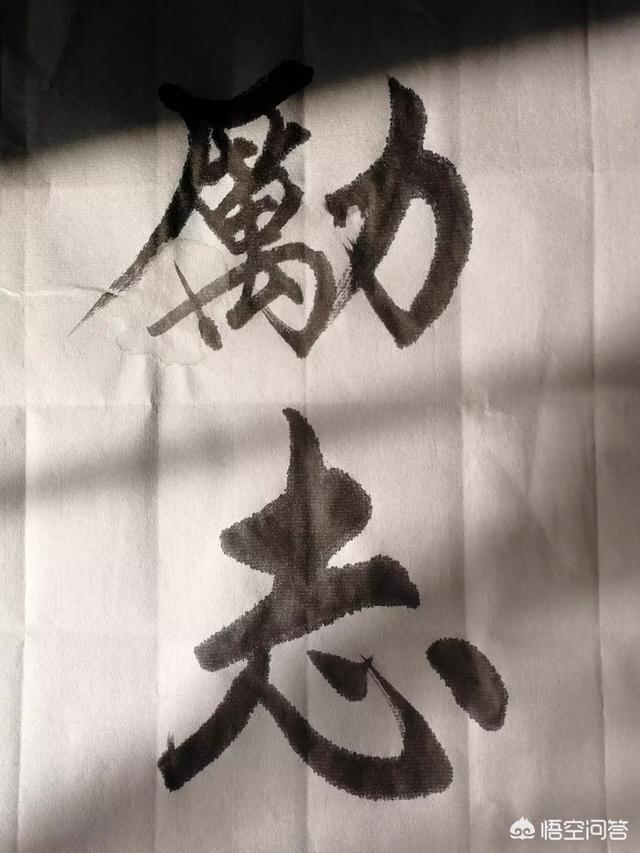 勵
志
悟空问答